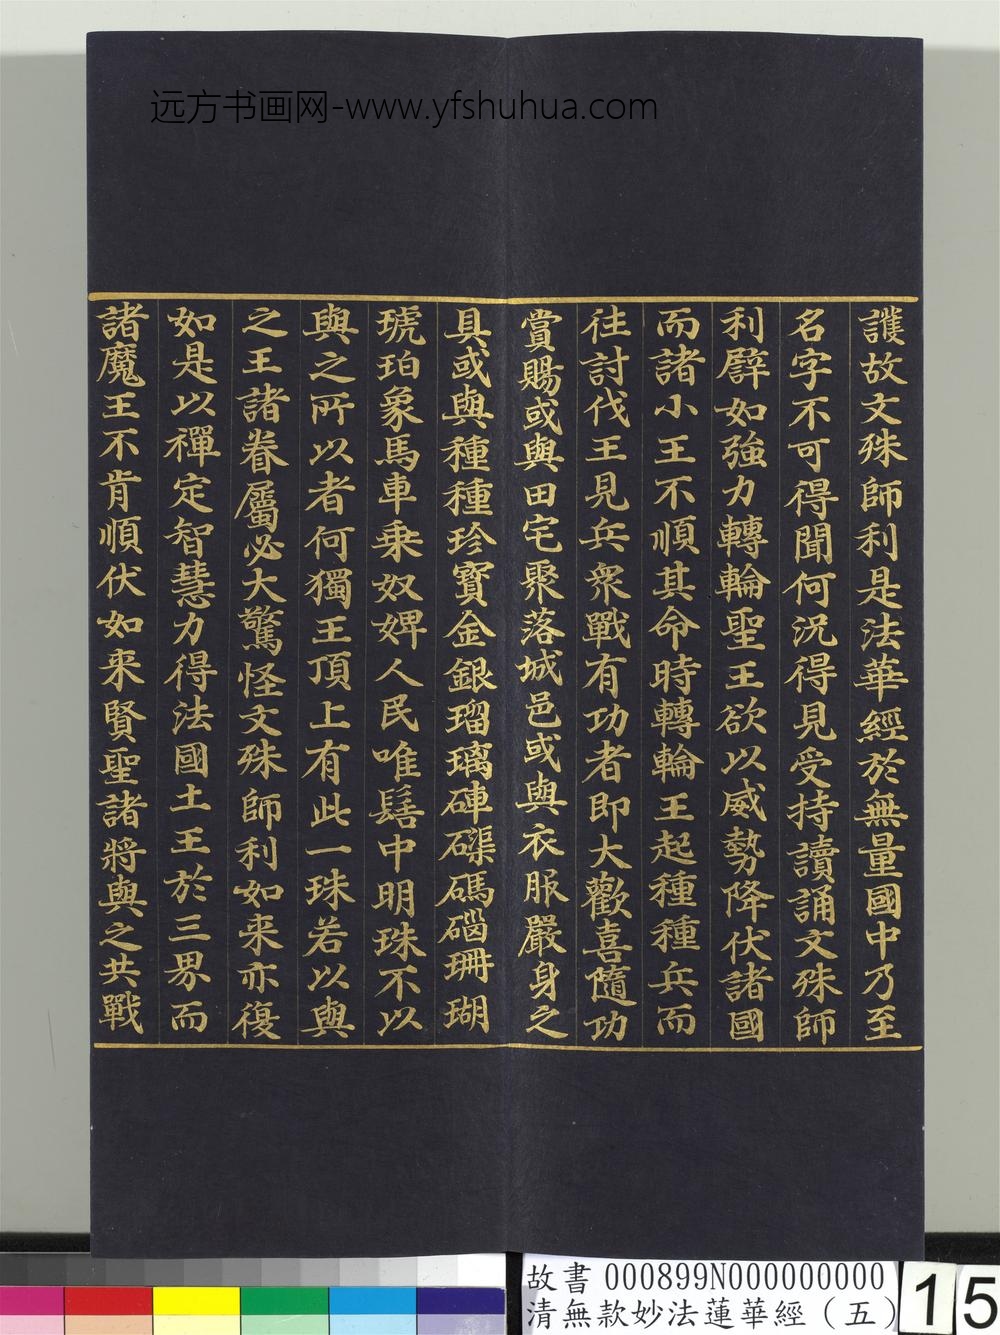 远方书画网-www.yfshuhua.com
護故文殊師利是法華經於無量國中乃至
名字不可得聞何況得見受持讀誦文殊師
利譬如強力轉輪聖王欲以威勢降伏諸國
而諸小王不順其命時轉輪王起種種兵而
往討伐王見兵眾戰有功者即大歡喜隨功
賞賜或與田宅聚落城邑或與衣服嚴身之
具或與種種珍寶金銀瑠璃硨磲碼碯珊瑚
琥珀象馬車乗奴婢人民唯髻中明珠不以
與之所以者何獨王頂上有此一珠若以與
之王諸眷屬必大驚怪文殊師利如來亦復
如是以禪定智慧力得法國土王於三界而
諸魔王不肯順伏如來賢聖諸將與之共戰
故書 000899N000000000
清無款妙法蓮華經（五）
15